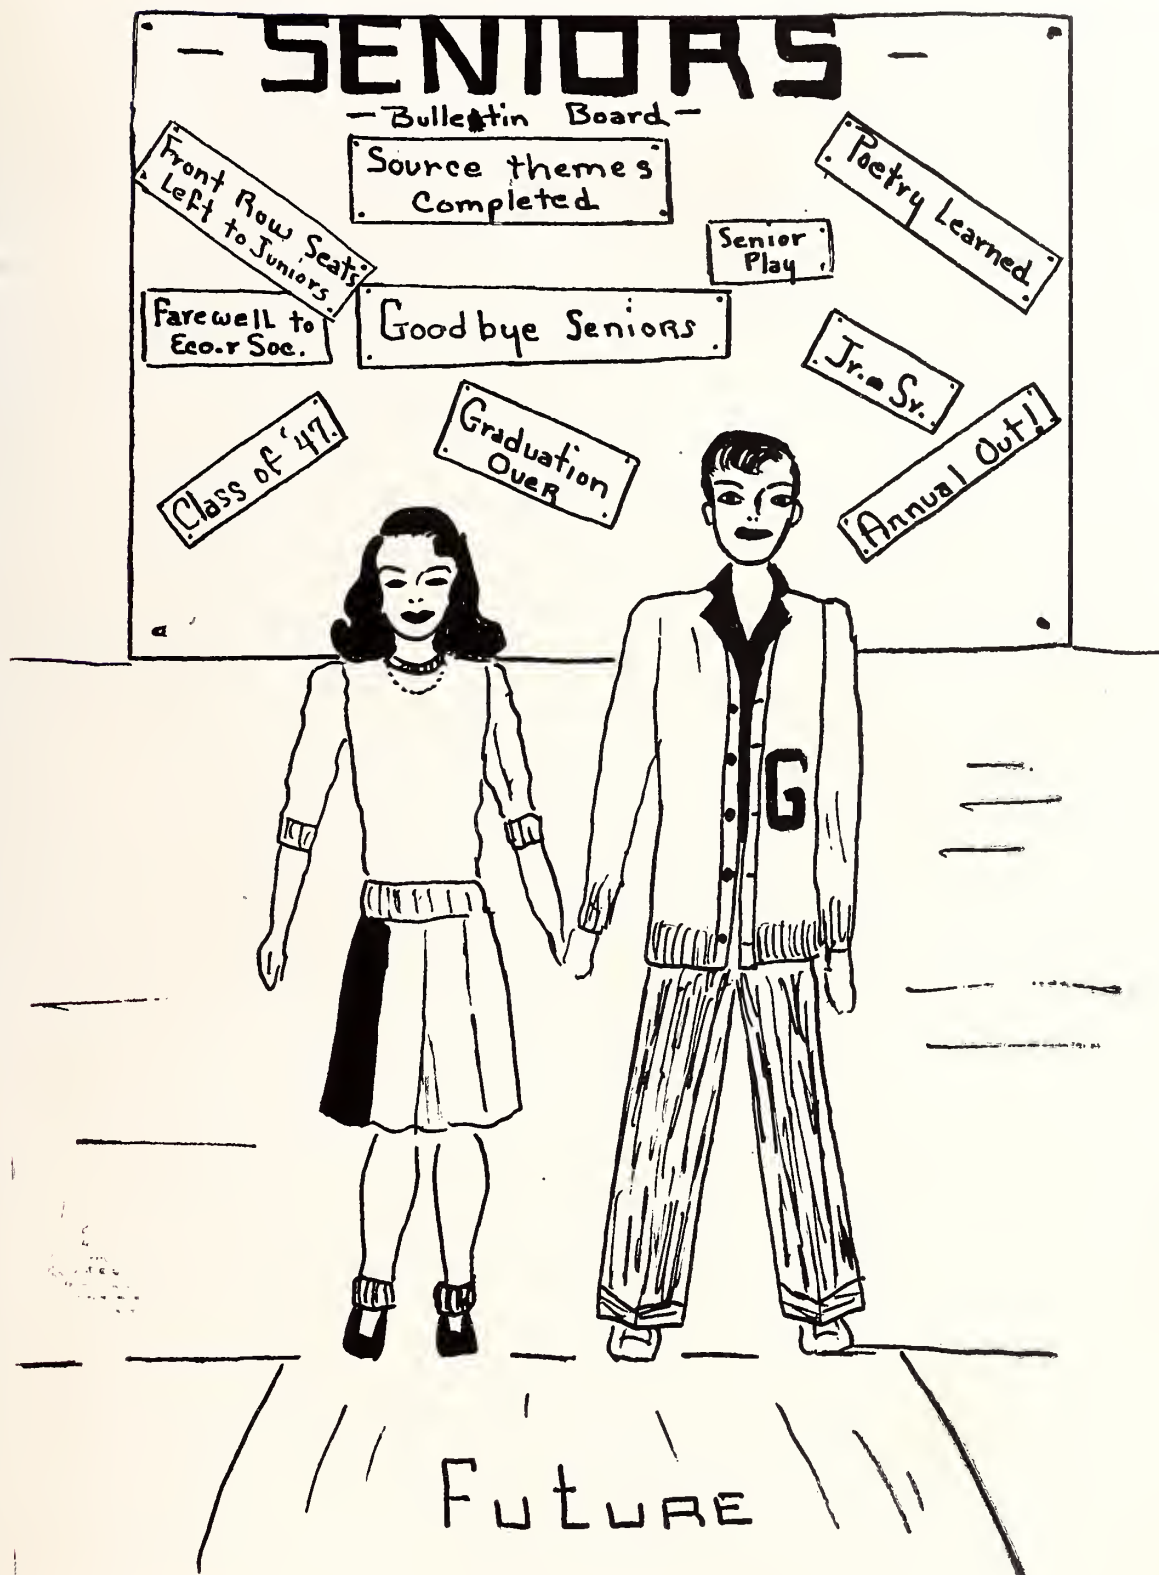 — SENIORS —
— Bulletin Board —
Front Row Seats
Left to Juniors
Source themes
Completed
Poetry Learned
Senior
Play
Farewell to
Eco.r Soc.
Goodbye Seniors
Jr.-Sr.
Class of '47.
Graduation
Over
Annual Out!
G
Future